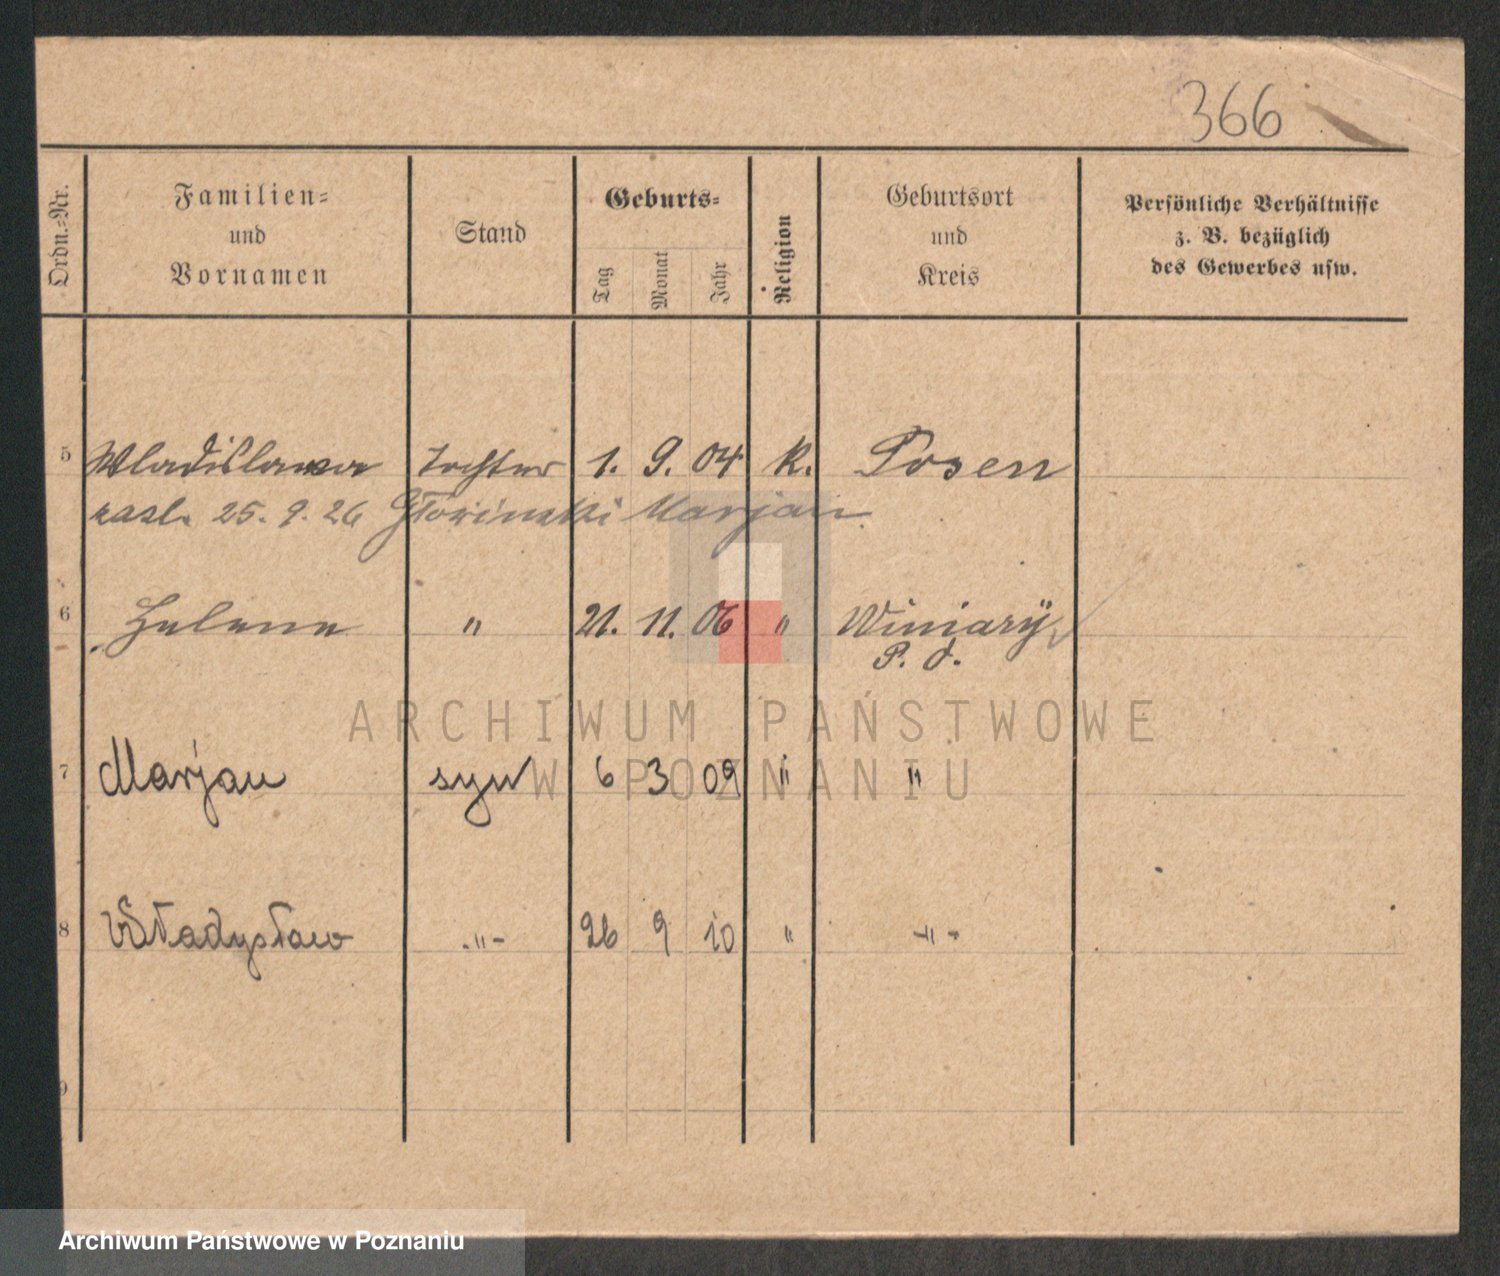 366
Ordn.=Nr.
Familien=
und
Vornamen
Stand
Geburts=
Tag
Monat
Jahr
Religion
Geburtsort
und
Kreis
Persönliche Verhältnisse
z. B. bezüglich
des Gewerbes usw.
5 Wladislawa Tochter 1. 9. 04 k. Posen
zasl. 25. 9. 26 Marjan
6 Helene " 21. 11. 06 " Winiary
P. O.
7 Marjan syn 6 3 09 " "
8 Władysław -"- 26 9 10 " -"-
9
ARCHIWUM PAŃSTWOWE
W POZNANIU
Archiwum Państwowe w Poznaniu